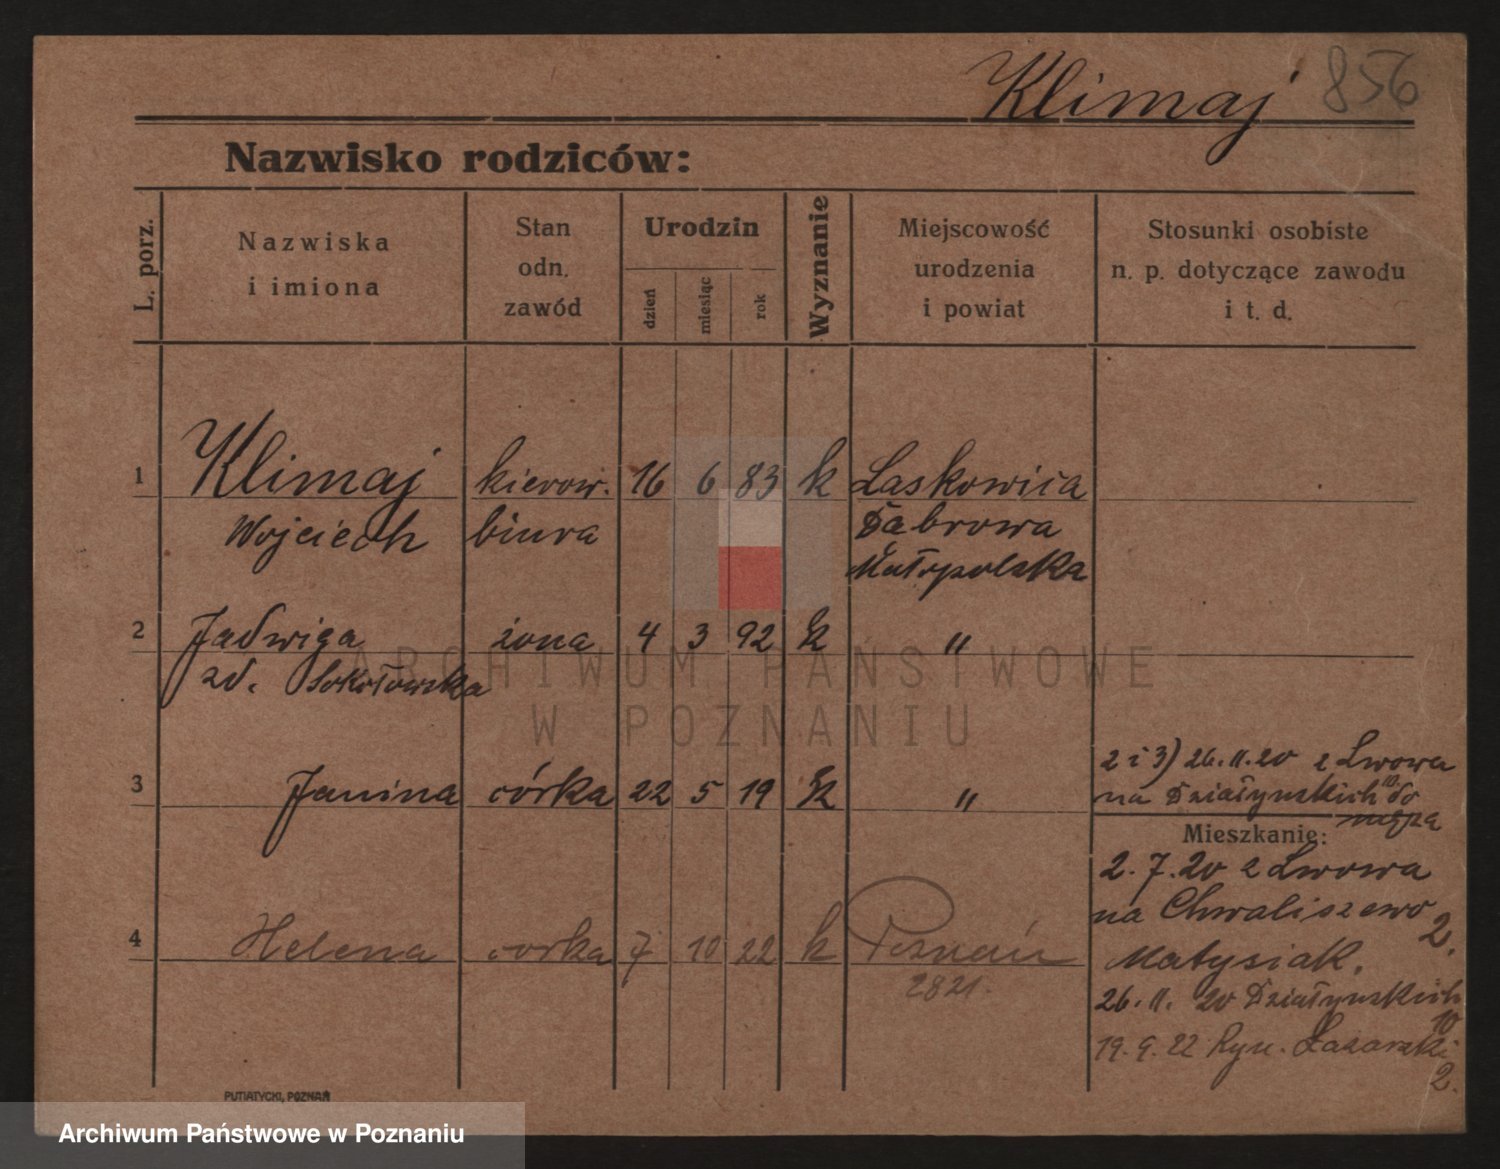 Klimaj 856
Nazwisko rodziców:
L. porz.
Nazwiska
i imiona
Stan
odn.
zawód
Urodzin
dzień
miesiąc
rok
Wyznanie
Miejscowość
urodzenia
i powiat
Stosunki osobiste
n. p. dotyczące zawodu
i t. d.
1 Klimaj kierow. 16 6 83 k Laskowica
Wojciech biura Dąbrowa
Małopolska
2 Jadwiga żona 4 3 92 k "
zd. Sokołowska
2 i 3) 26.11.20 z Lwowa
3 Janina córka 22 5 19 k " na Działyńskich 10 do
męża
Mieszkanie:
2.7.20 z Lwowa
na Chwaliszewo 2.
4 Helena corka 7 10 22 k Poznań
Matysiak.
2821.
26.11.20 Działyńskich 10
19.9.22 Ryn. Łazarski 2.
PUTIATYCKI, POZNAŃ
ARCHIWUM PAŃSTWOWE
W POZNANIU
Archiwum Państwowe w Poznaniu